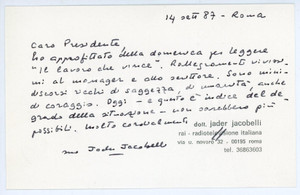 14 ott 87 - Roma
Caro Presidente,
ho approfittato della domenica per leggere
"Il lavoro che vince". Rallegramenti vivissi-
mi al manager e allo scrittore. Sono mini-
discorsi ricchi di saggezza, di umanità, anche
di coraggio. Oggi - e questo è indice del de-
grado della situazione - non sarebbero più
possibili. Molto cordialmente
suo Jader Jacobelli
dott. jader jacobelli
rai - radiotelevisione italiana
via u. novaro 32 - 00195 roma
tel. 36863603